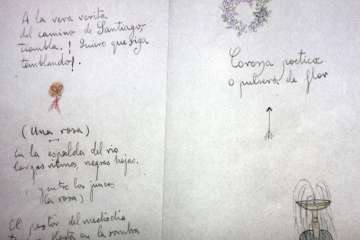 A la vera verita
del camino de Santiago,
tiembla. ¡ Quiero que siga
temblando!
(Una rosa)
En la espalda del río
largos ritmos, negras hojas.
y entre los juncos
(la rosa)
El pastor del mediodía
en la sombra
Corona poética
o pulsera de flor